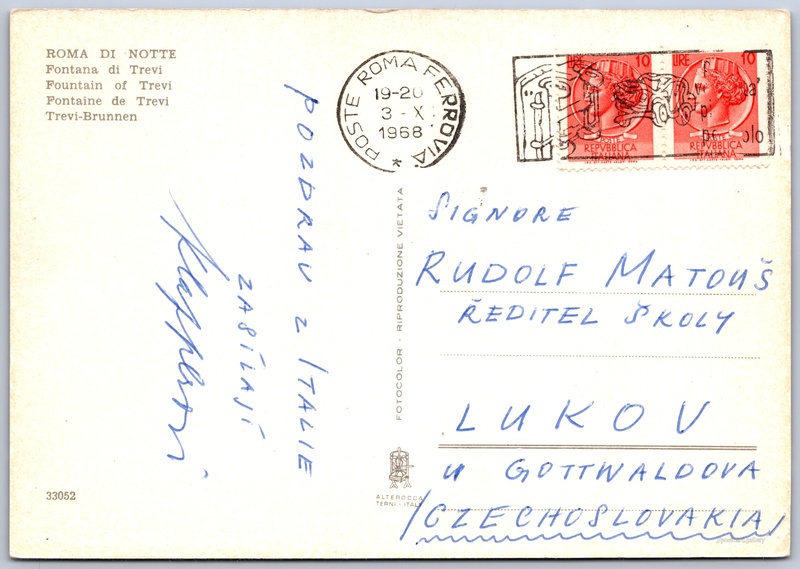 ROMA DI NOTTE
Fontana di Trevi
Fountain of Trevi
Fontaine de Trevi
Trevi-Brunnen
POSTE ROMA FERROVIA *
19-20
3 - X
1968
10
LIRE 10
REPVBBLICA
ITALIANA
REPVBBLICA
ITALIANA
POZDRAV z ITALIE
ZASÍLAJÍ
FOTOCOLOR - RIPRODUZIONE VIETATA
SIGNORE
RUDOLF MATOUŠ
ŘEDITEL ŠKOLY
LUKOV
u GOTTWALDOVA
/CZECHOSLOVAKIA/
33052
ALTEROCCA
TERNI - ITALY